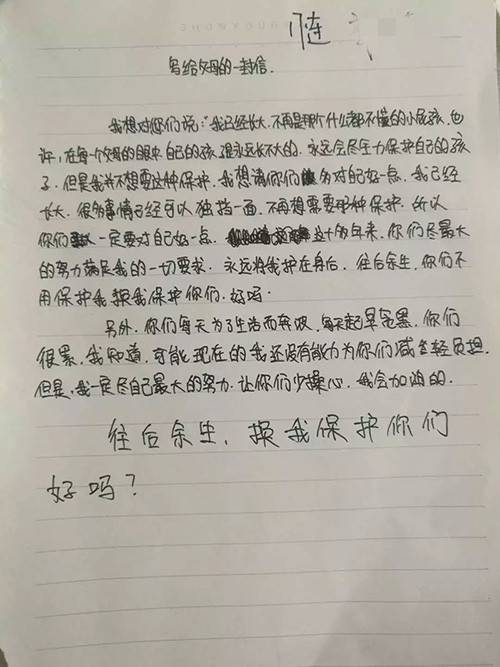 17连
写给父母的一封信.
我想对你们说:"我已经长大,不再是那个什么都不懂的小屁孩,也
许,在每个父母的眼中,自己的孩子是永远长不大的.永远会尽全力保护自己的孩
子.但是我并不想要这种保护.我想请你们多对自己好一点.我已经
长大.很多事情已经可以独挡一面.不再想需要那种保护.所以
你们一定要对自己好一点.这十多年来,你们尽最大
的努力满足我的一切要求.永远将我护在身后.往后余生,你们不
用保护我.换我保护你们.好吗.
另外,你们每天为了生活而奔波,每天起早贪黑.你们
很累,我知道,可能现在的我还没有能力为你们减轻负担.
但是,我一定尽自己最大的努力.让你们少操心.我会加油的.
往后余生,换我保护你们
好吗?